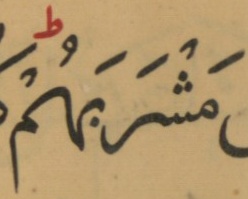 مَّشْرَبَهُمْ ۖ